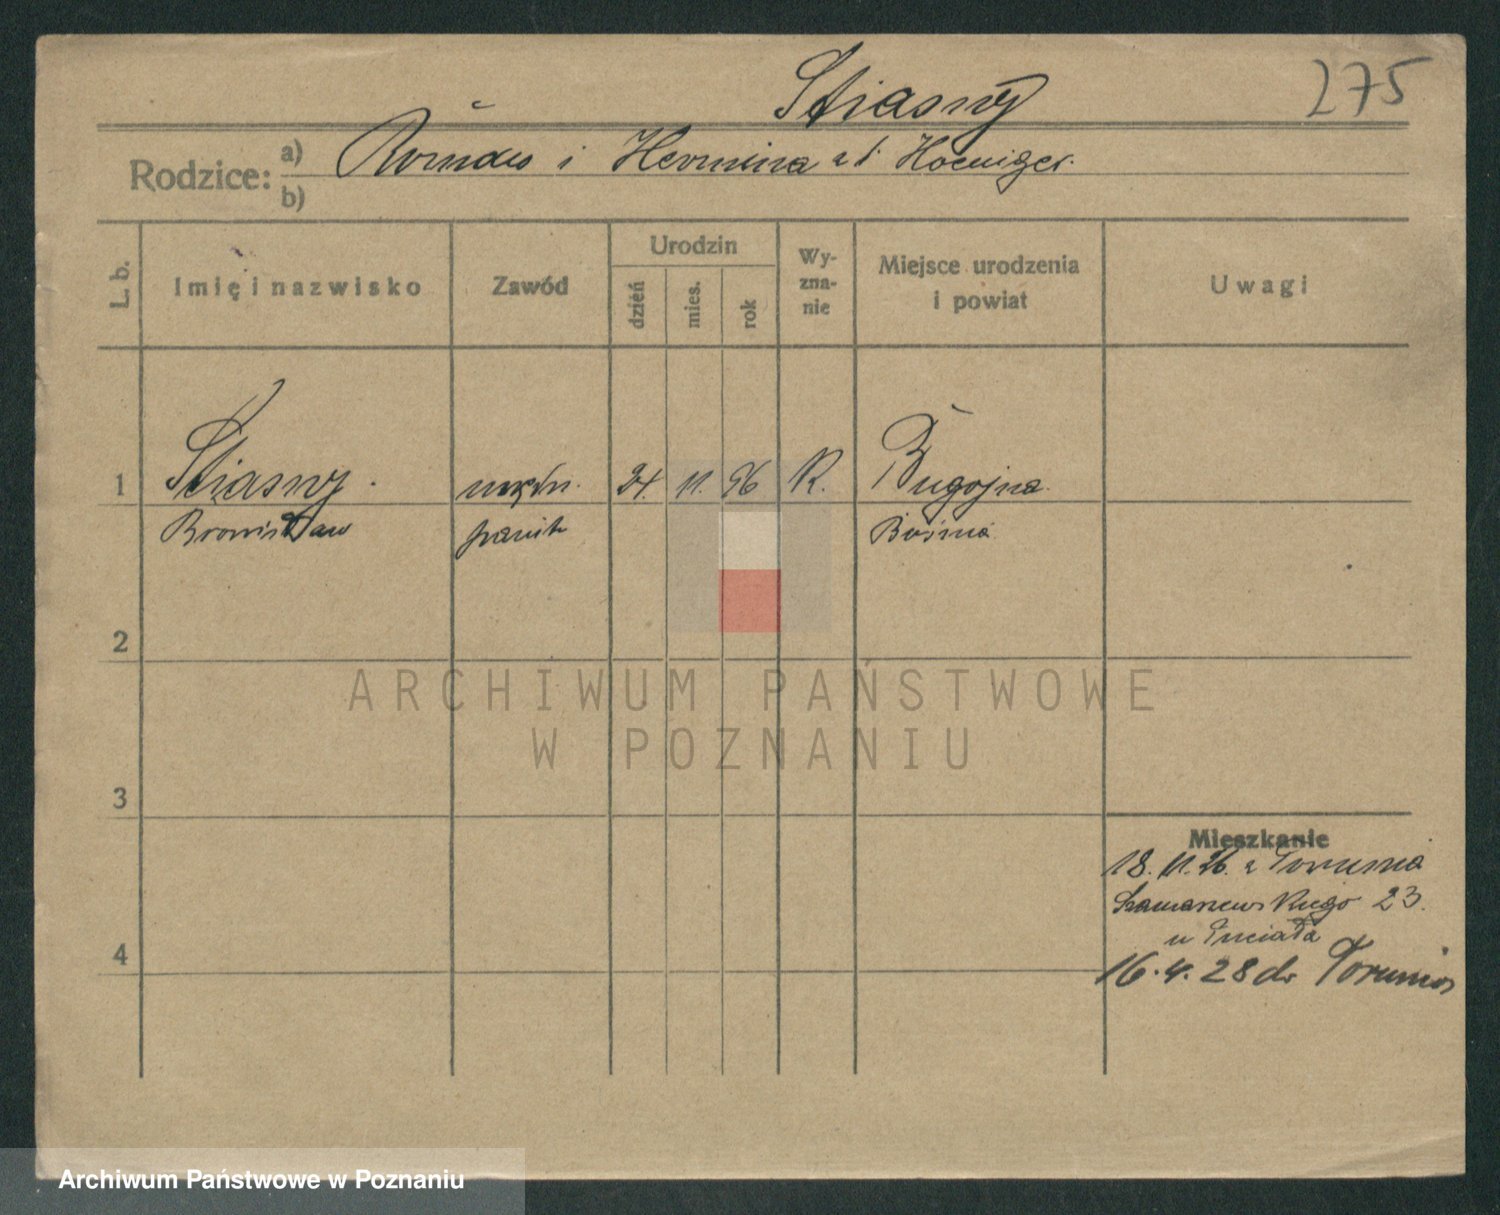 Stiasny
275
Rodzice: a) i Hermina z d. Hoeniger
b)
L. b.
Imię i nazwisko
Zawód
Urodzin
dzień
mies.
rok
Wy-
zna-
nie
Miejsce urodzenia
i powiat
Uwagi
1 Stiasny. urzędn. 24. 11. 96 R. Bugojna
Bronisław Bośnia
2
ARCHIWUM PAŃSTWOWE
W POZNANIU
3
Mieszkanie
18. 11. 26. z Torunia
23.
u
4
16. 4. 28 do Torunia
Archiwum Państwowe w Poznaniu